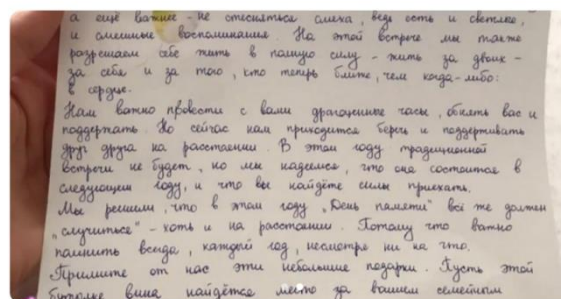 а ещё важнее - не стесняться смеха, ведь есть и светлые,
и смешные воспоминания. На этой встрече мы также
разрешаем себе жить в полную силу - жить за двоих -
за себя и за того, кто теперь ближе, чем когда-либо:
в сердце.
Нам важно провести с вами драгоценные часы, обнять вас и
поддержать. Но сейчас нам приходится беречь и поддерживать
друг друга на расстоянии. В этом году традиционной
встречи не будет, но мы надеемся, что она состоится в
следующем году, и что вы найдёте силы приехать.
Мы решили, что в этом году „День памяти" всё же должен
„случиться" - хоть и на расстоянии. Потому что важно
помнить всегда, каждый год, несмотря ни на что.
Примите от нас эти небольшие подарки. Пусть этой
бутылке вина найдётся место за вашим семейным